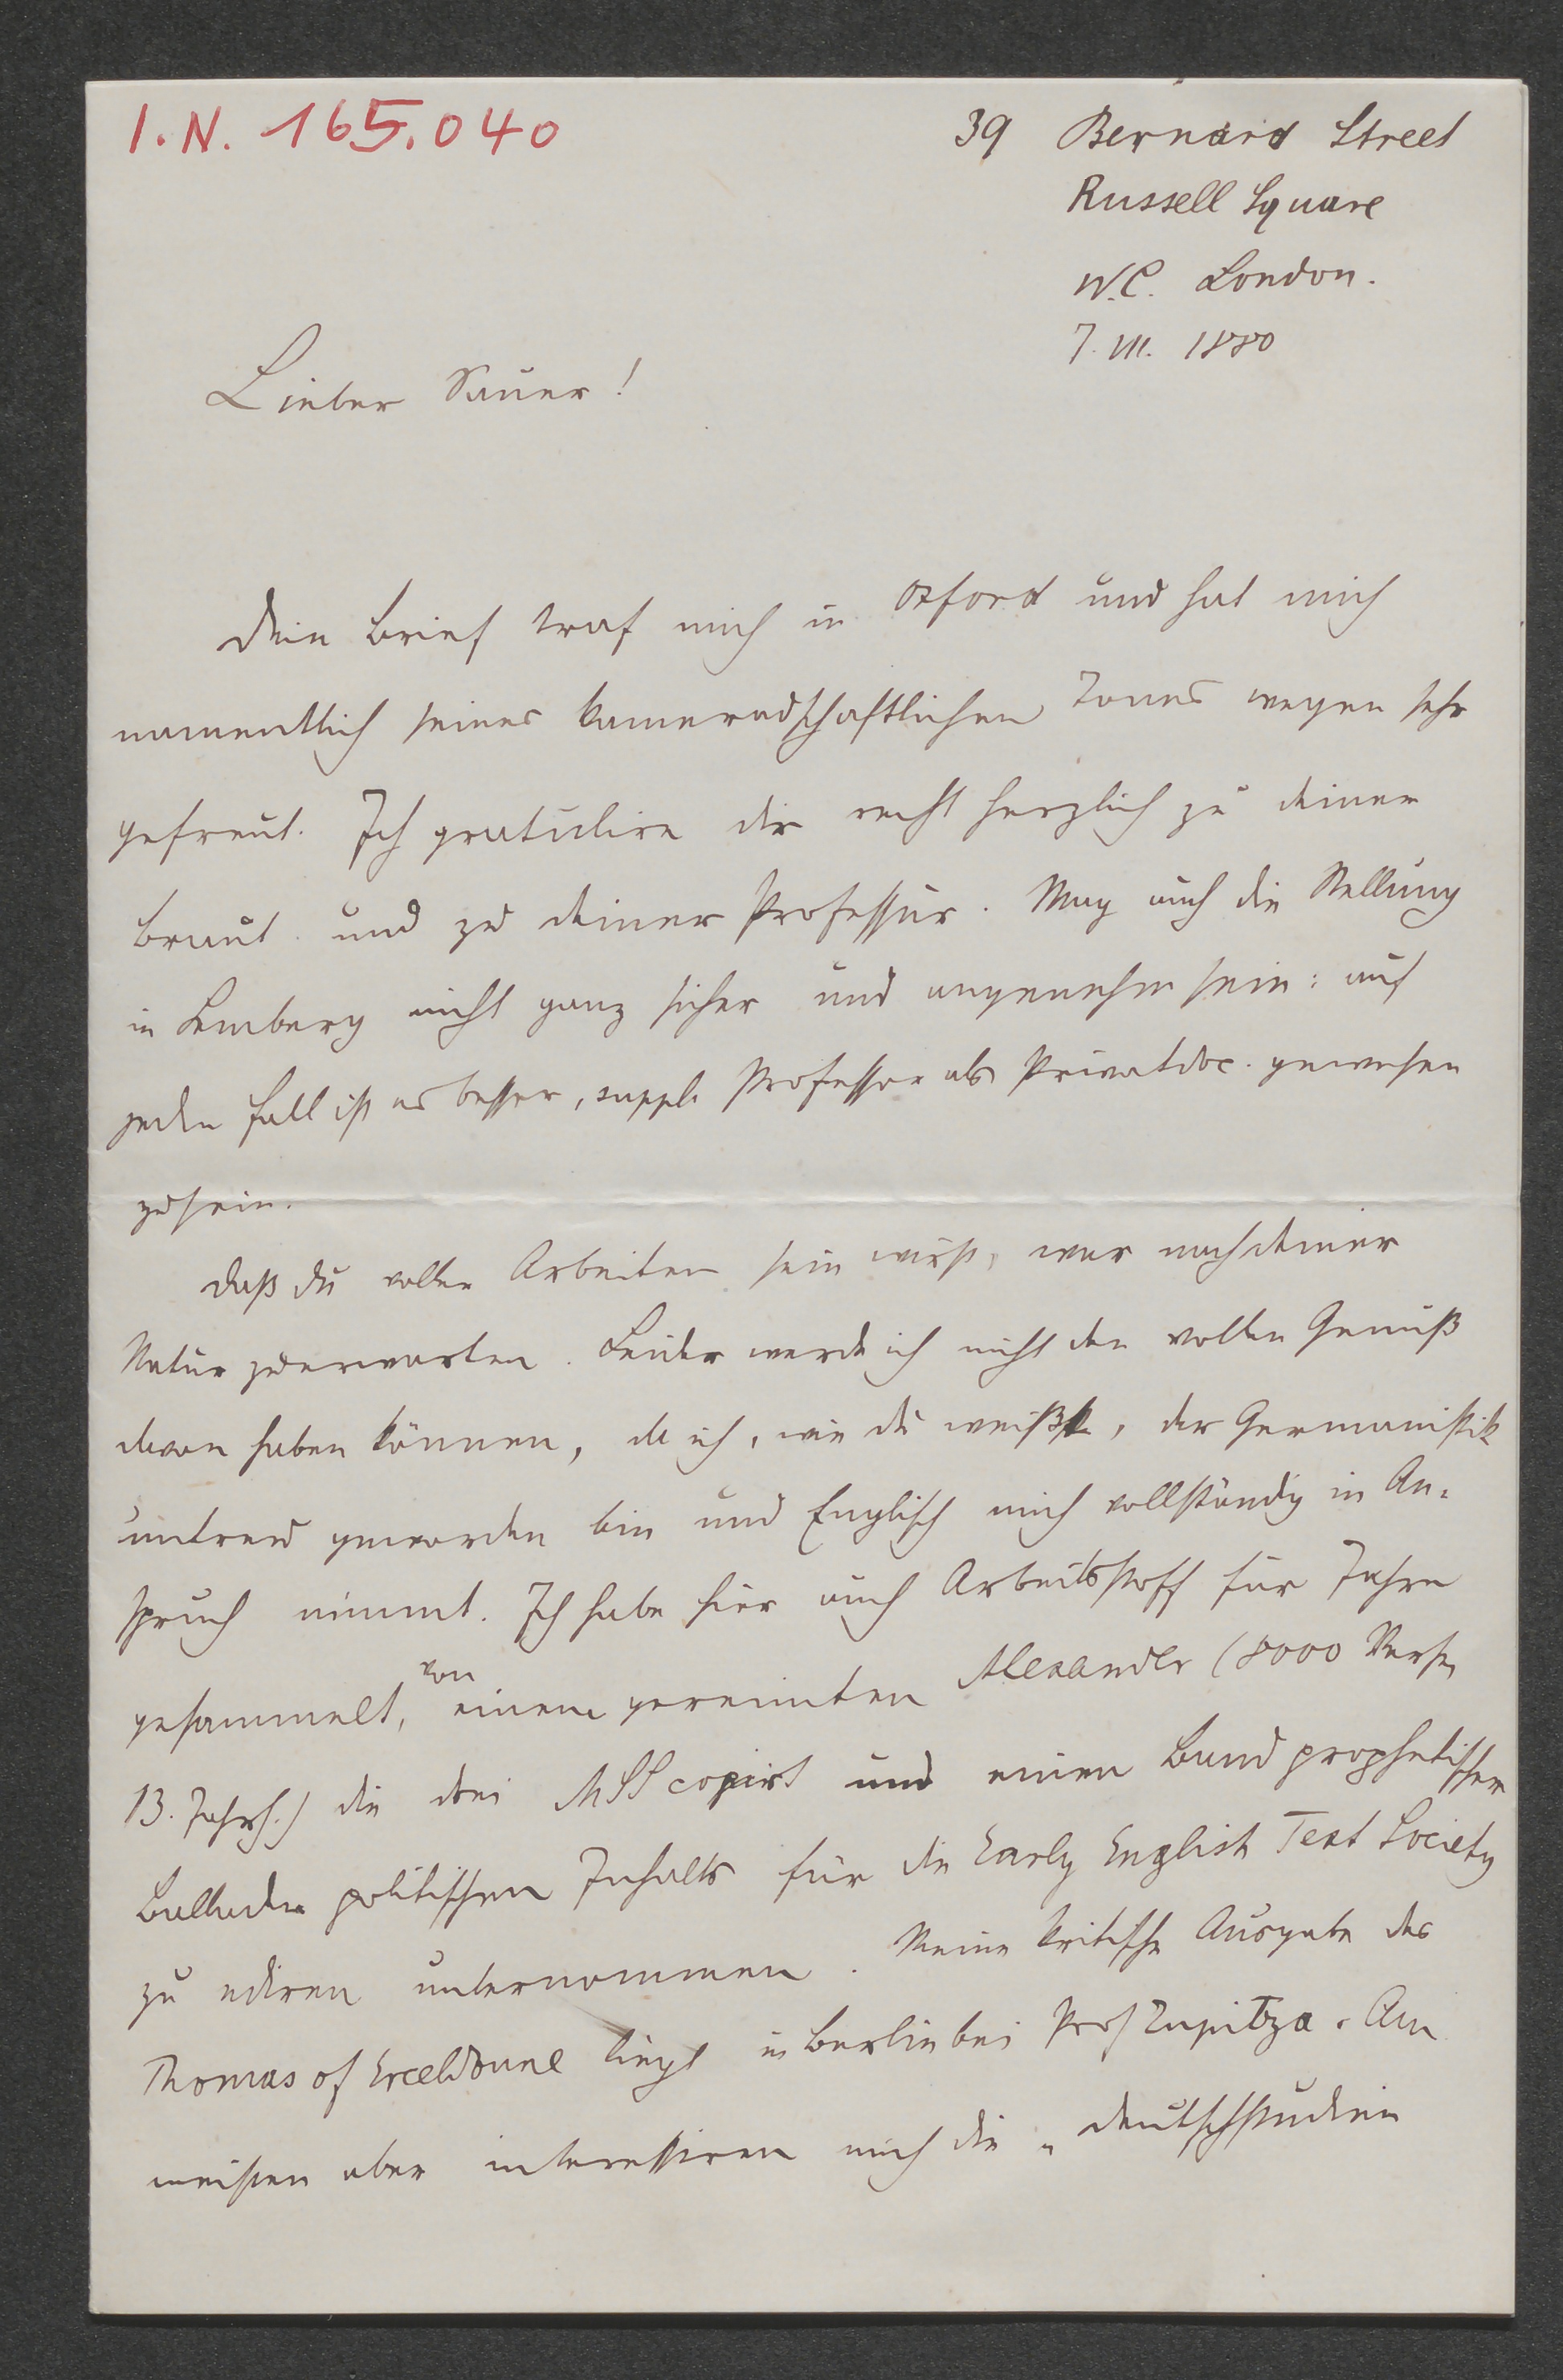 I.N. 165.040
39 Bernard Street
Russell Square
W.C. London.
7. III. 1880
Lieber Sauer!
Dein Brief traf mich in Oxford und hat mich
namentlich seines kameradschaftlichen Tones wegen sehr
gefreut. Ich gratulire dir recht herzlich zu deiner
Braut und zu deiner Professur. Mag auch die Stellung
in Lemberg nicht ganz sicher und angenehm sein: auf
jeden Fall ist es besser, suppl. Professor als Privatdoc. gewesen
zu sein.
Daß du voller Arbeiten sein wirst, war nach deiner
Natur zu erwarten. Leider werde ich nicht den vollen Genuß
davon haben können, da ich, wie du weißt, der Germanistik
untreu geworden bin und Englisch mich vollständig in An-
spruch nimmt. Ich habe hier auch Arbeitsstoff für Jahre
gesammelt, von einem gereimten Alexander (8000 Verse,
13. Jahrh.) die drei MSS copirt und einen Band prophetischer
Balladen politischen Inhalts für die Early English Text Society
zu ediren unternommen. Meine kritische Ausgabe des
Thomas of Erceldoune liegt in Berlin bei Prof Zupitza. Am
meisten aber interessiren mich die „Deutschstudien